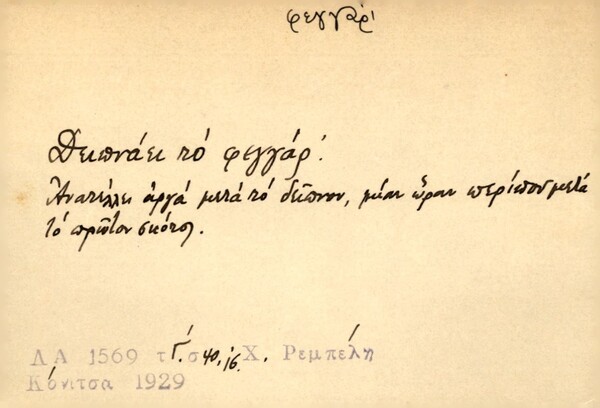 φεγγάρι
Δειπνάει τό φεγγάρ'.
Ἀνατέλλει ἀργά μετά τό δεῖπνον, μίαν ὥραν περίπου μετά
τό πρῶτον σκότος.
ΛΑ 1569 τ. Γ. σ. 40, 16. Χ. Ρεμπέλη
Κόνιτσα 1929